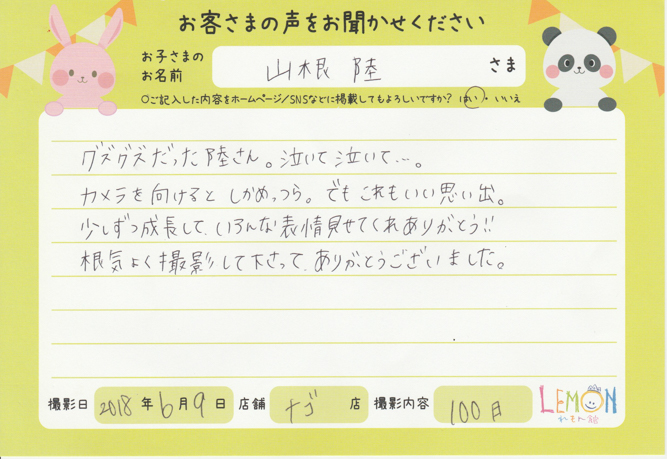 お客さまの声をお聞かせください
お子さまの
お名前
山根 陸 さま
○ご記入した内容をホームページ/SNSなどに掲載してもよろしいですか? はい・いいえ
グズグズだった陸さん。泣いて泣いて…。
カメラを向けると しかめっつら。でも これもいい思い出。
少しずつ成長して、いろんな表情見せてくれありがとう!!
根気よく撮影して下さって、ありがとうございました。
撮影日 2018年 6月9日 店舗 ナゴ 店 撮影内容 100日
LEMON
れもん館